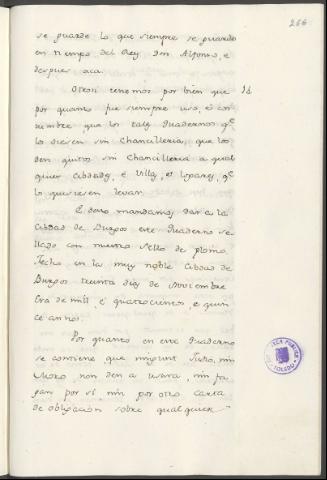 266
se guarde lo que siempre se guardó
en tiempo del Rey Don Alfonso, e
despues aca.
Otrosi tenemos por bien que 16
por quanto fue siempre uso, e cos-
tumbre que los tales quadernos qe.
los diesen sin Chancilleria, que los
den quitos sin Chancilleria a qual
quier Cibdades, é Villas, et logares qe.
lo quisieren levar.
E desto mandamos dar a la
Cibdad de Burgos este quaderno se-
llado con nuestro sello de plomo.
Fecho en la muy noble Cibdad de
Burgos treinta dias de Noviembre
Era de mil é quatrocientos, e quin
ce annos.
Por quanto en este quaderno
se contiene que ningunt Judio, nin
Moro non den a usura, nin fa
gan por sí nin por otro carta
de obligacion sobre qualquier
TOLEDO